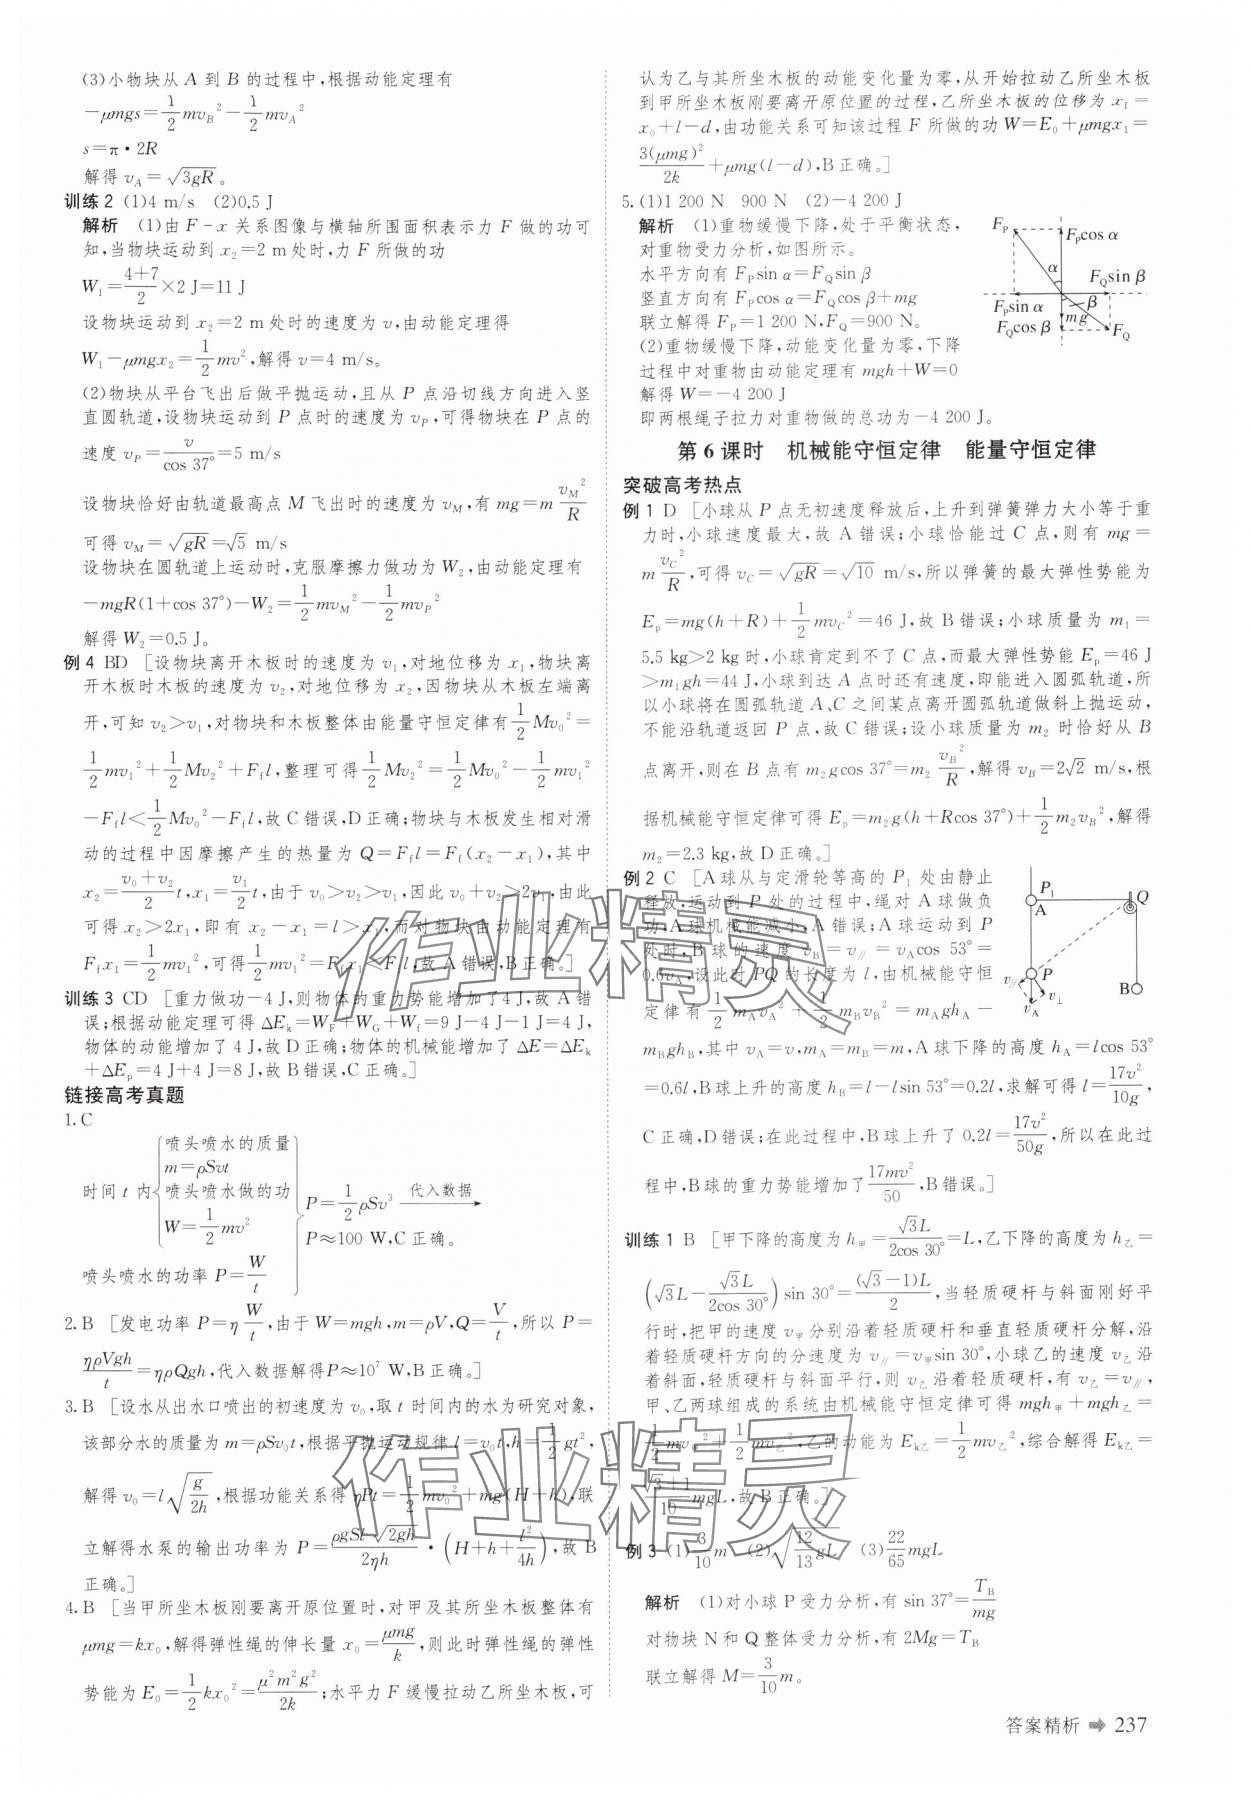 (3)小物块从 A 到 B 的过程中,根据动能定理有
−μmgs=1/2 mv_B²−1/2 mv_A²
s=π·2R
解得 v_A=√(3gR)。
训练2 (1)4 m/s (2)0.5 J
解析 (1)由 F-x 关系图像与横轴所围面积表示力 F 做的功可
知,当物块运动到 x₂=2 m处时,力 F 所做的功
W₁=(4+7)/2×2 J=11 J
设物块运动到 x₂=2 m处时的速度为 v,由动能定理得
W₁−μmgx₂=1/2 mv²,解得 v=4 m/s。
(2)物块从平台飞出后做平抛运动,且从 P 点沿切线方向进入竖
直圆轨道,设物块运动到 P 点时的速度为 v_P,可得物块在 P 点的
速度 v_P=v/cos 37°=5 m/s
设物块恰好由轨道最高点 M 飞出时的速度为 v_M,有 mg=m v_M²/R
可得 v_M=√(gR)=√5 m/s
设物块在圆轨道上运动时,克服摩擦力做功为 W₂,由动能定理有
−mgR(1+cos 37°)−W₂=1/2 mv_M²−1/2 mv_P²
解得 W₂=0.5 J。
例 4 BD [设物块离开木板时的速度为 v₁,对地位移为 x₁,物块离
开木板时木板的速度为 v₂,对地位移为 x₂,因物块从木板左端离
开,可知 v₂>v₁,对物块和木板整体由能量守恒定律有1/2 Mv₀²=
1/2 mv₁²+1/2 Mv₂²+F_f l,整理可得1/2 Mv₂²=1/2 Mv₀²−1/2 mv₁²
−F_f l<1/2 Mv₀²−F_f l,故 C 错误,D 正确;物块与木板发生相对滑
动的过程中因摩擦产生的热量为 Q=F_f l=F_f(x₂−x₁),其中
x₂=(v₀+v₂)/2 t,x₁=v₁/2 t,由于 v₀>v₂>v₁,因此 v₀+v₂>2v₁,由此
可得 x₂>2x₁,即有 x₂−x₁=l>x₁,而对物块由动能定理有
F_f x₁=1/2 mv₁²,可得1/2 mv₁²=F_f x₁<F_f l,故 A 错误,B 正确。]
训练 3 CD [重力做功−4 J,则物体的重力势能增加了4 J,故 A 错
误;根据动能定理可得 ΔE_k=W_F+W_G+W_f=9 J−4 J−1 J=4 J,
物体的动能增加了 4 J,故 D 正确;物体的机械能增加了 ΔE=ΔE_k
+ΔE_p=4 J+4 J=8 J,故 B 错误,C 正确。]
链接高考真题
1.C
时间 t 内
喷头喷水的质量
m=ρSvt
喷头喷水做的功
W=1/2 mv²
喷头喷水的功率 P=W/t
P=1/2 ρSv³ 代入数据
P≈100 W,C 正确。
2.B [发电功率 P=η W/t,由于 W=mgh,m=ρV,Q=V/t,所以 P=
ηρVgh/t=ηρQgh,代入数据解得P≈10⁷ W,B 正确。]
3.B [设水从出水口喷出的初速度为 v₀,取 t 时间内的水为研究对象,
该部分水的质量为 m=ρSv₀t,根据平抛运动规律 l=v₀t,h=1/2 gt²,
解得 v₀=l√(g/2h),根据功能关系得 ηPt=1/2 mv₀²+mg(H+h),联
立解得水泵的输出功率为 P=ρgSl√(2gh)/2ηh·(H+h+l²/4h),故 B
正确。]
4.B [当甲所坐木板刚要离开原位置时,对甲及其所坐木板整体有
μmg=kx₀,解得弹性绳的伸长量 x₀=μmg/k,则此时弹性绳的弹性
势能为 E₀=1/2 kx₀²=μ²m²g²/2k;水平力 F 缓慢拉动乙所坐木板,可
认为乙与其所坐木板的动能变化量为零,从开始拉动乙所坐木板
到甲所坐木板刚要离开原位置的过程,乙所坐木板的位移为 x₁=
x₀+l−d,由功能关系可知该过程 F 所做的功 W=E₀+μmgx₁=
3(μmg)²/2k+μmg(l−d),B 正确。]
5.(1)1 200 N 900 N (2)−4 200 J
解析 (1)重物缓慢下降,处于平衡状态,
对重物受力分析,如图所示。
水平方向有 F_P sin α=F_Q sin β
竖直方向有 F_P cos α=F_Q cos β+mg
联立解得 F_P=1 200 N,F_Q=900 N。
(2)重物缓慢下降,动能变化量为零,下降
过程中对重物由动能定理有 mgh+W=0
解得 W=−4 200 J
即两根绳子拉力对重物做的总功为−4 200 J。
F_P
F_P cos α
α
F_Q sin β
F_P sin α
β
F_Q cos β
mg
F_Q
第 6 课时 机械能守恒定律 能量守恒定律
突破高考热点
例 1 D [小球从 P 点无初速度释放后,上升到弹簧弹力大小等于重
力时,小球速度最大,故 A 错误;小球恰能过 C 点,则有 mg=
m v_C²/R,可得 v_C=√(gR)=√10 m/s,所以弹簧的最大弹性势能为
E_p=mg(h+R)+1/2 mv_C²=46 J,故 B 错误;小球质量为 m₁=
5.5 kg>2 kg 时,小球肯定到不了 C 点,而最大弹性势能 E_p=46 J
>m₁gh=44 J,小球到达 A 点时还有速度,即能进入圆弧轨道,所
以小球将在圆弧轨道 A、C 之间某点离开圆弧轨道做斜上抛运动,
不能沿轨道返回 P 点,故 C 错误;设小球质量为 m₂ 时恰好从 B
点离开,则在 B 点有 m₂gcos 37°=m₂ v_B²/R,解得 v_B=2√2 m/s,根
据机械能守恒定律可得 E_p=m₂g(h+Rcos 37°)+1/2 m₂v_B²,解得
m₂=2.3 kg,故 D 正确。]
例 2 C [A 球从与定滑轮等高的 P₁ 处由静止
释放,运动到 P 处的过程中,绳对 A 球做负
功,A 球机械能减小,A 错误;A 球运动到 P
处时,B 球的速度 v_B=v_∥=v_A cos 53°=
0.6v_A,设此时 PQ 的长度为 l,由机械能守恒
定律有1/2 m_A v_A²+1/2 m_B v_B²=m_A gh_A−
m_B gh_B,其中 v_A=v,m_A=m_B=m,A 球下降的高度 h_A=lcos 53°
=0.6l,B 球上升的高度 h_B=l−lsin 53°=0.2l,求解可得 l=17v²/10g,
C 正确,D 错误;在此过程中,B 球上升了 0.2l=17v²/50g,所以在此过
程中,B 球的重力势能增加了17mv²/50,B 错误。]
P₁
Q
A
P
B
v_∥
v_⊥
v_A
训练 1 B [甲下降的高度为 h甲=√3L/2cos 30°=L,乙下降的高度为 h乙=
(√3L−√3L/2cos 30°)sin 30°=(√3−1)L/2,当轻质硬杆与斜面刚好平
行时,把甲的速度 v甲分别沿着轻质硬杆和垂直轻质硬杆分解,沿
着轻质硬杆方向的分速度为 v_∥=v甲sin 30°,小球乙的速度 v乙沿
着斜面,轻质硬杆与斜面平行,则 v乙沿着轻质硬杆,有 v乙=v_∥,
甲、乙两球组成的系统由机械能守恒定律可得 mgh甲+mgh乙=
1/2 mv甲²+1/2 mv乙²,乙的动能为 E_k乙=1/2 mv乙²,综合解得 E_k乙=
(√3+1)/10 mgL,故 B 正确。]
例 3 (1)3/10 m (2)√(12/13 gL) (3)22/65 mgL
解析 (1)对小球 P 受力分析,有 sin 37°=T_B/mg
对物块 N 和 Q 整体受力分析,有 2Mg=T_B
联立解得 M=3/10 m。
答案精析 ➡ 237
作业精灵
作业精灵